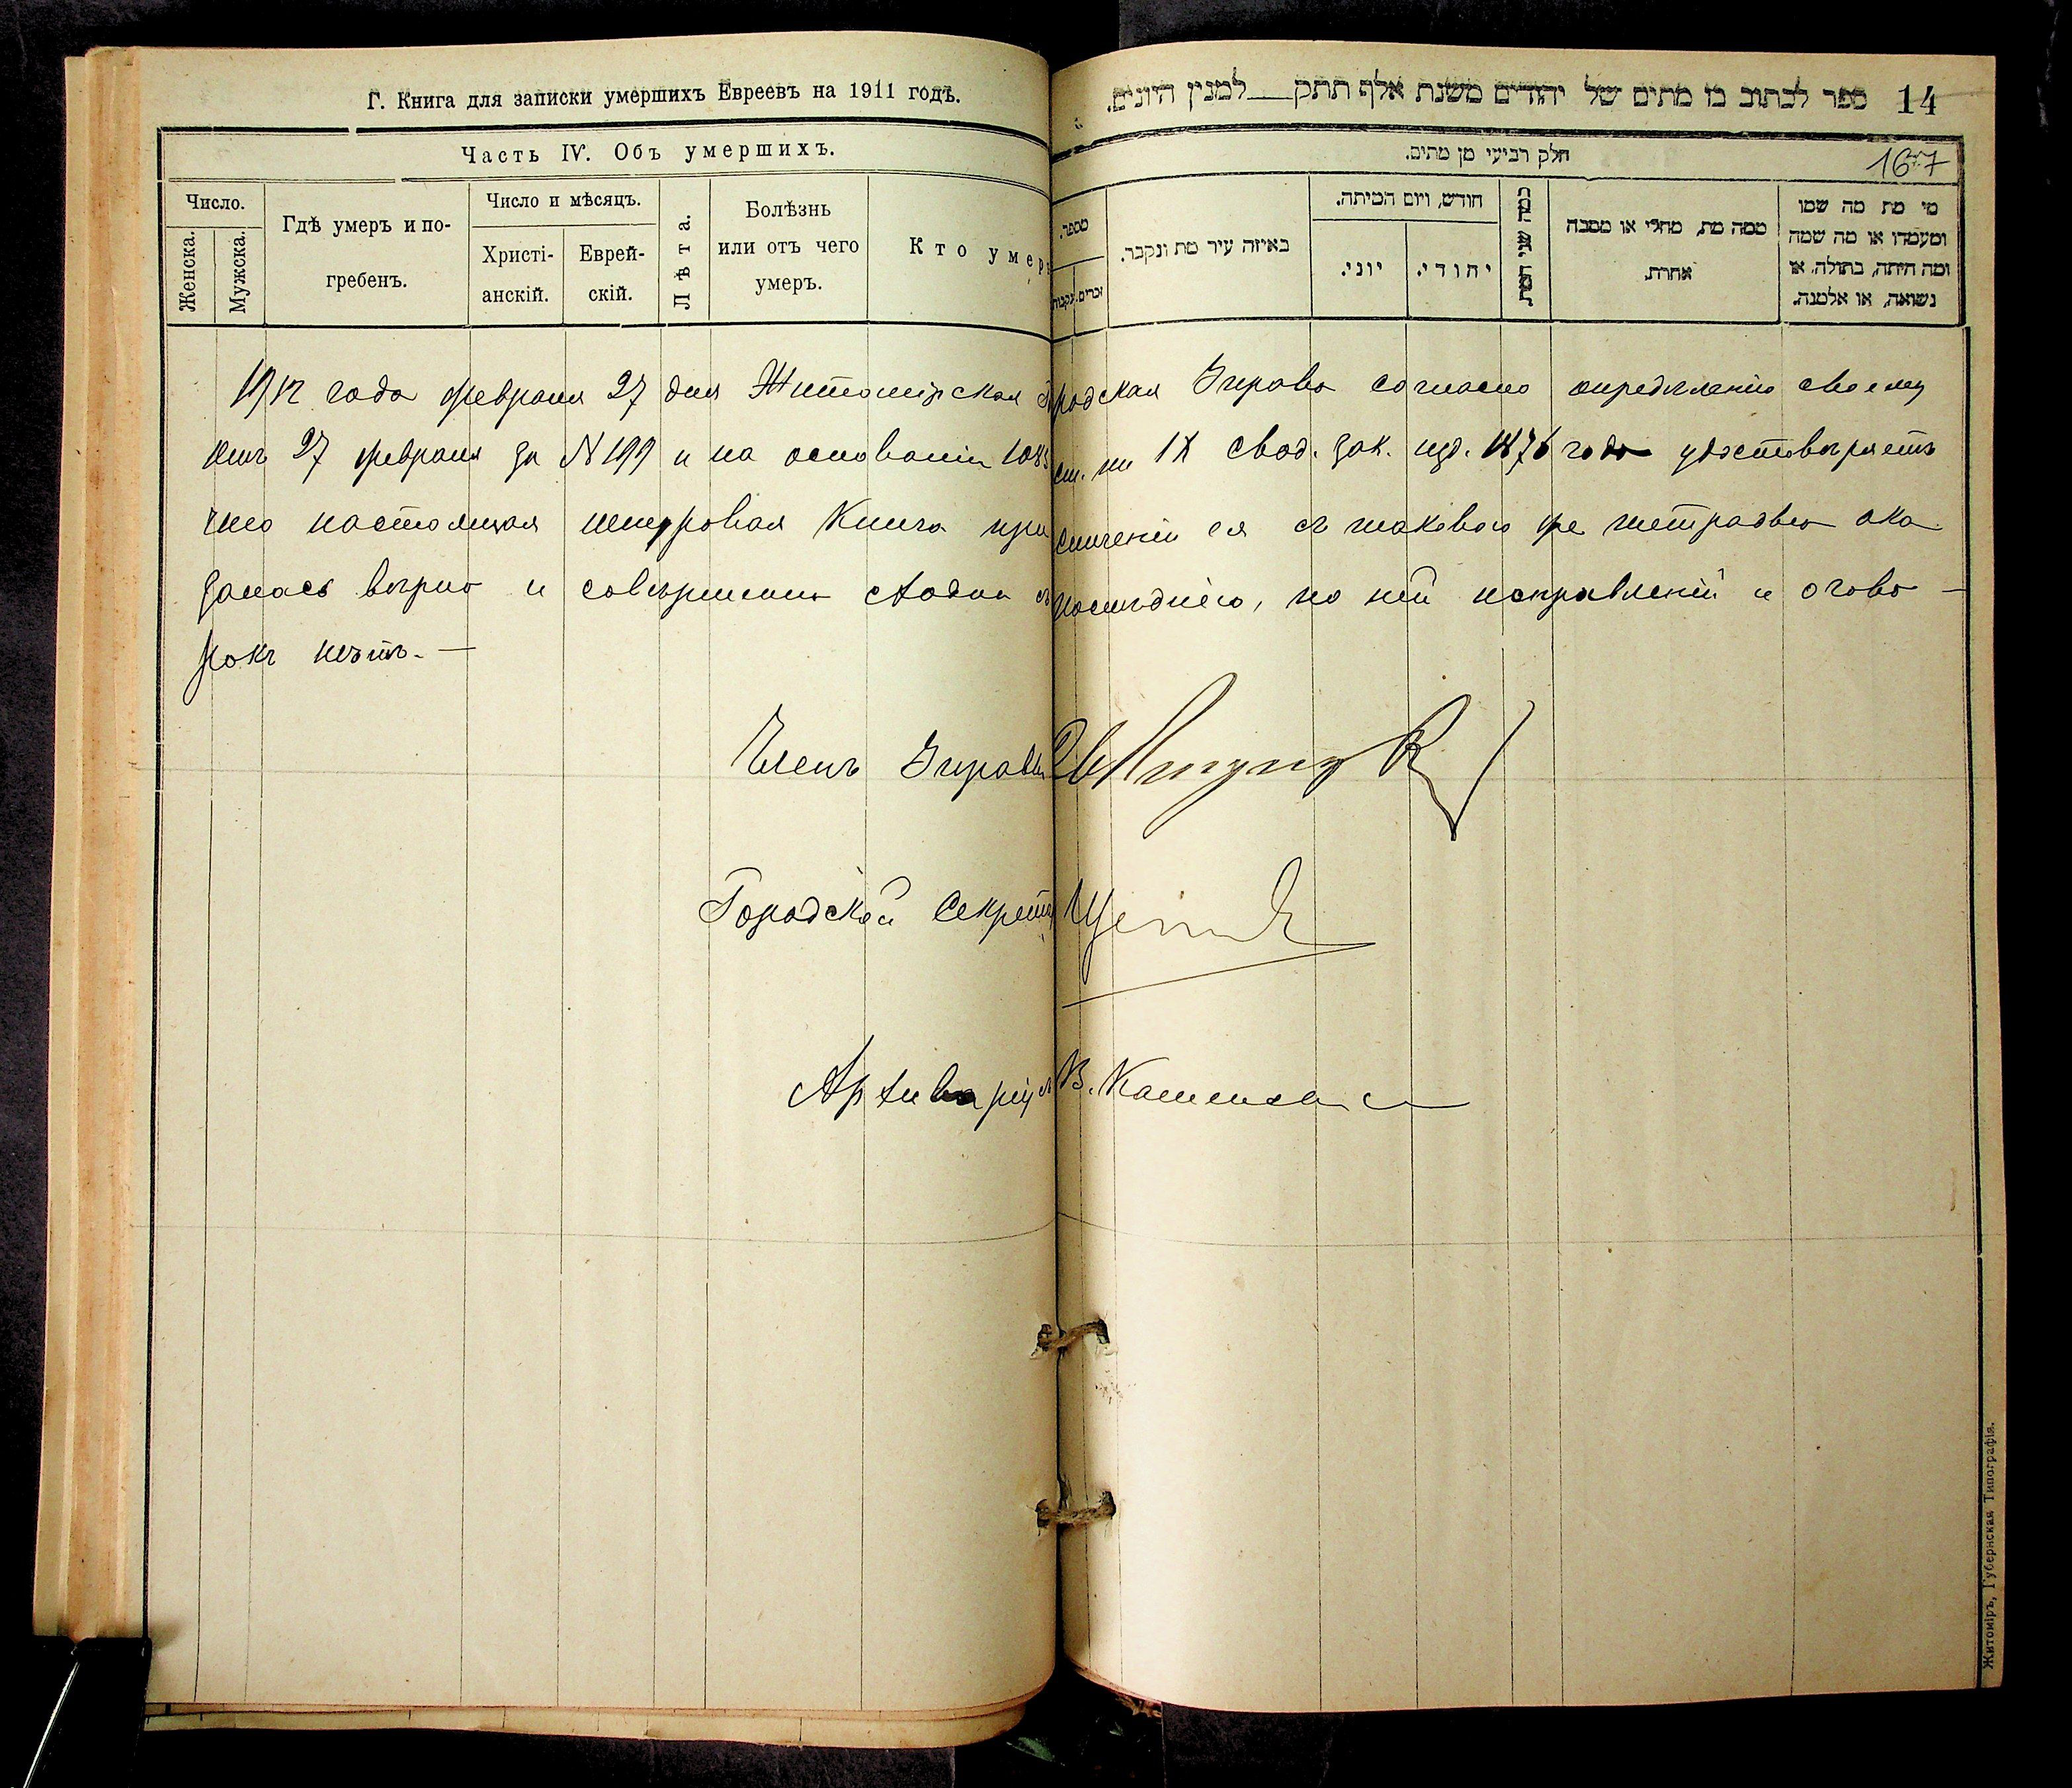 Г. Книга для записки умершихъ Евреевъ на 1911 годъ.
Часть IV. Объ умершихъ.
Число.
Женска.
Мужска.
Гдѣ умеръ и по-
гребенъ.
Число и мѣсяцъ.
Христі-
анскій.
Еврей-
скій.
Лѣта.
Болѣзнь
или отъ чего
умеръ.
Кто умеръ
14 ספר לכתוב בו מתים של יהודים משנת אלף תתק למנין היונים.
167
חלק רביעי מן מתים.
מספר.
זכרים.
נקבות
באיזה עיר מת ונקבר.
חודש, ויום המיתה.
יוני.
יהודי.
ממה מת, מחלי או מסבה
אחרת.
מי מת מה שמו
ומעמדו או מה שמה
ומה היתה, בתולה, או
נשואה, או אלמנה.
1912 года февраля 27 дня Житомирская Городская Управа согласно определенію своему
27 февраля за N 199 и на основаніи 1083 ст. IX свод. зак. изд. 1876 года удостовѣряетъ
что настоящая шнуровая Книга при сличеніи ея съ таковою же тетрадью ока-
залась вѣрно и совершенно сходна съ последнею, по ней исправленій и огово-
рокъ нѣтъ.—
Членъ Управы
Городской Секретарь
Архиваріусъ В.
Житоміръ, Губернская Типографія.